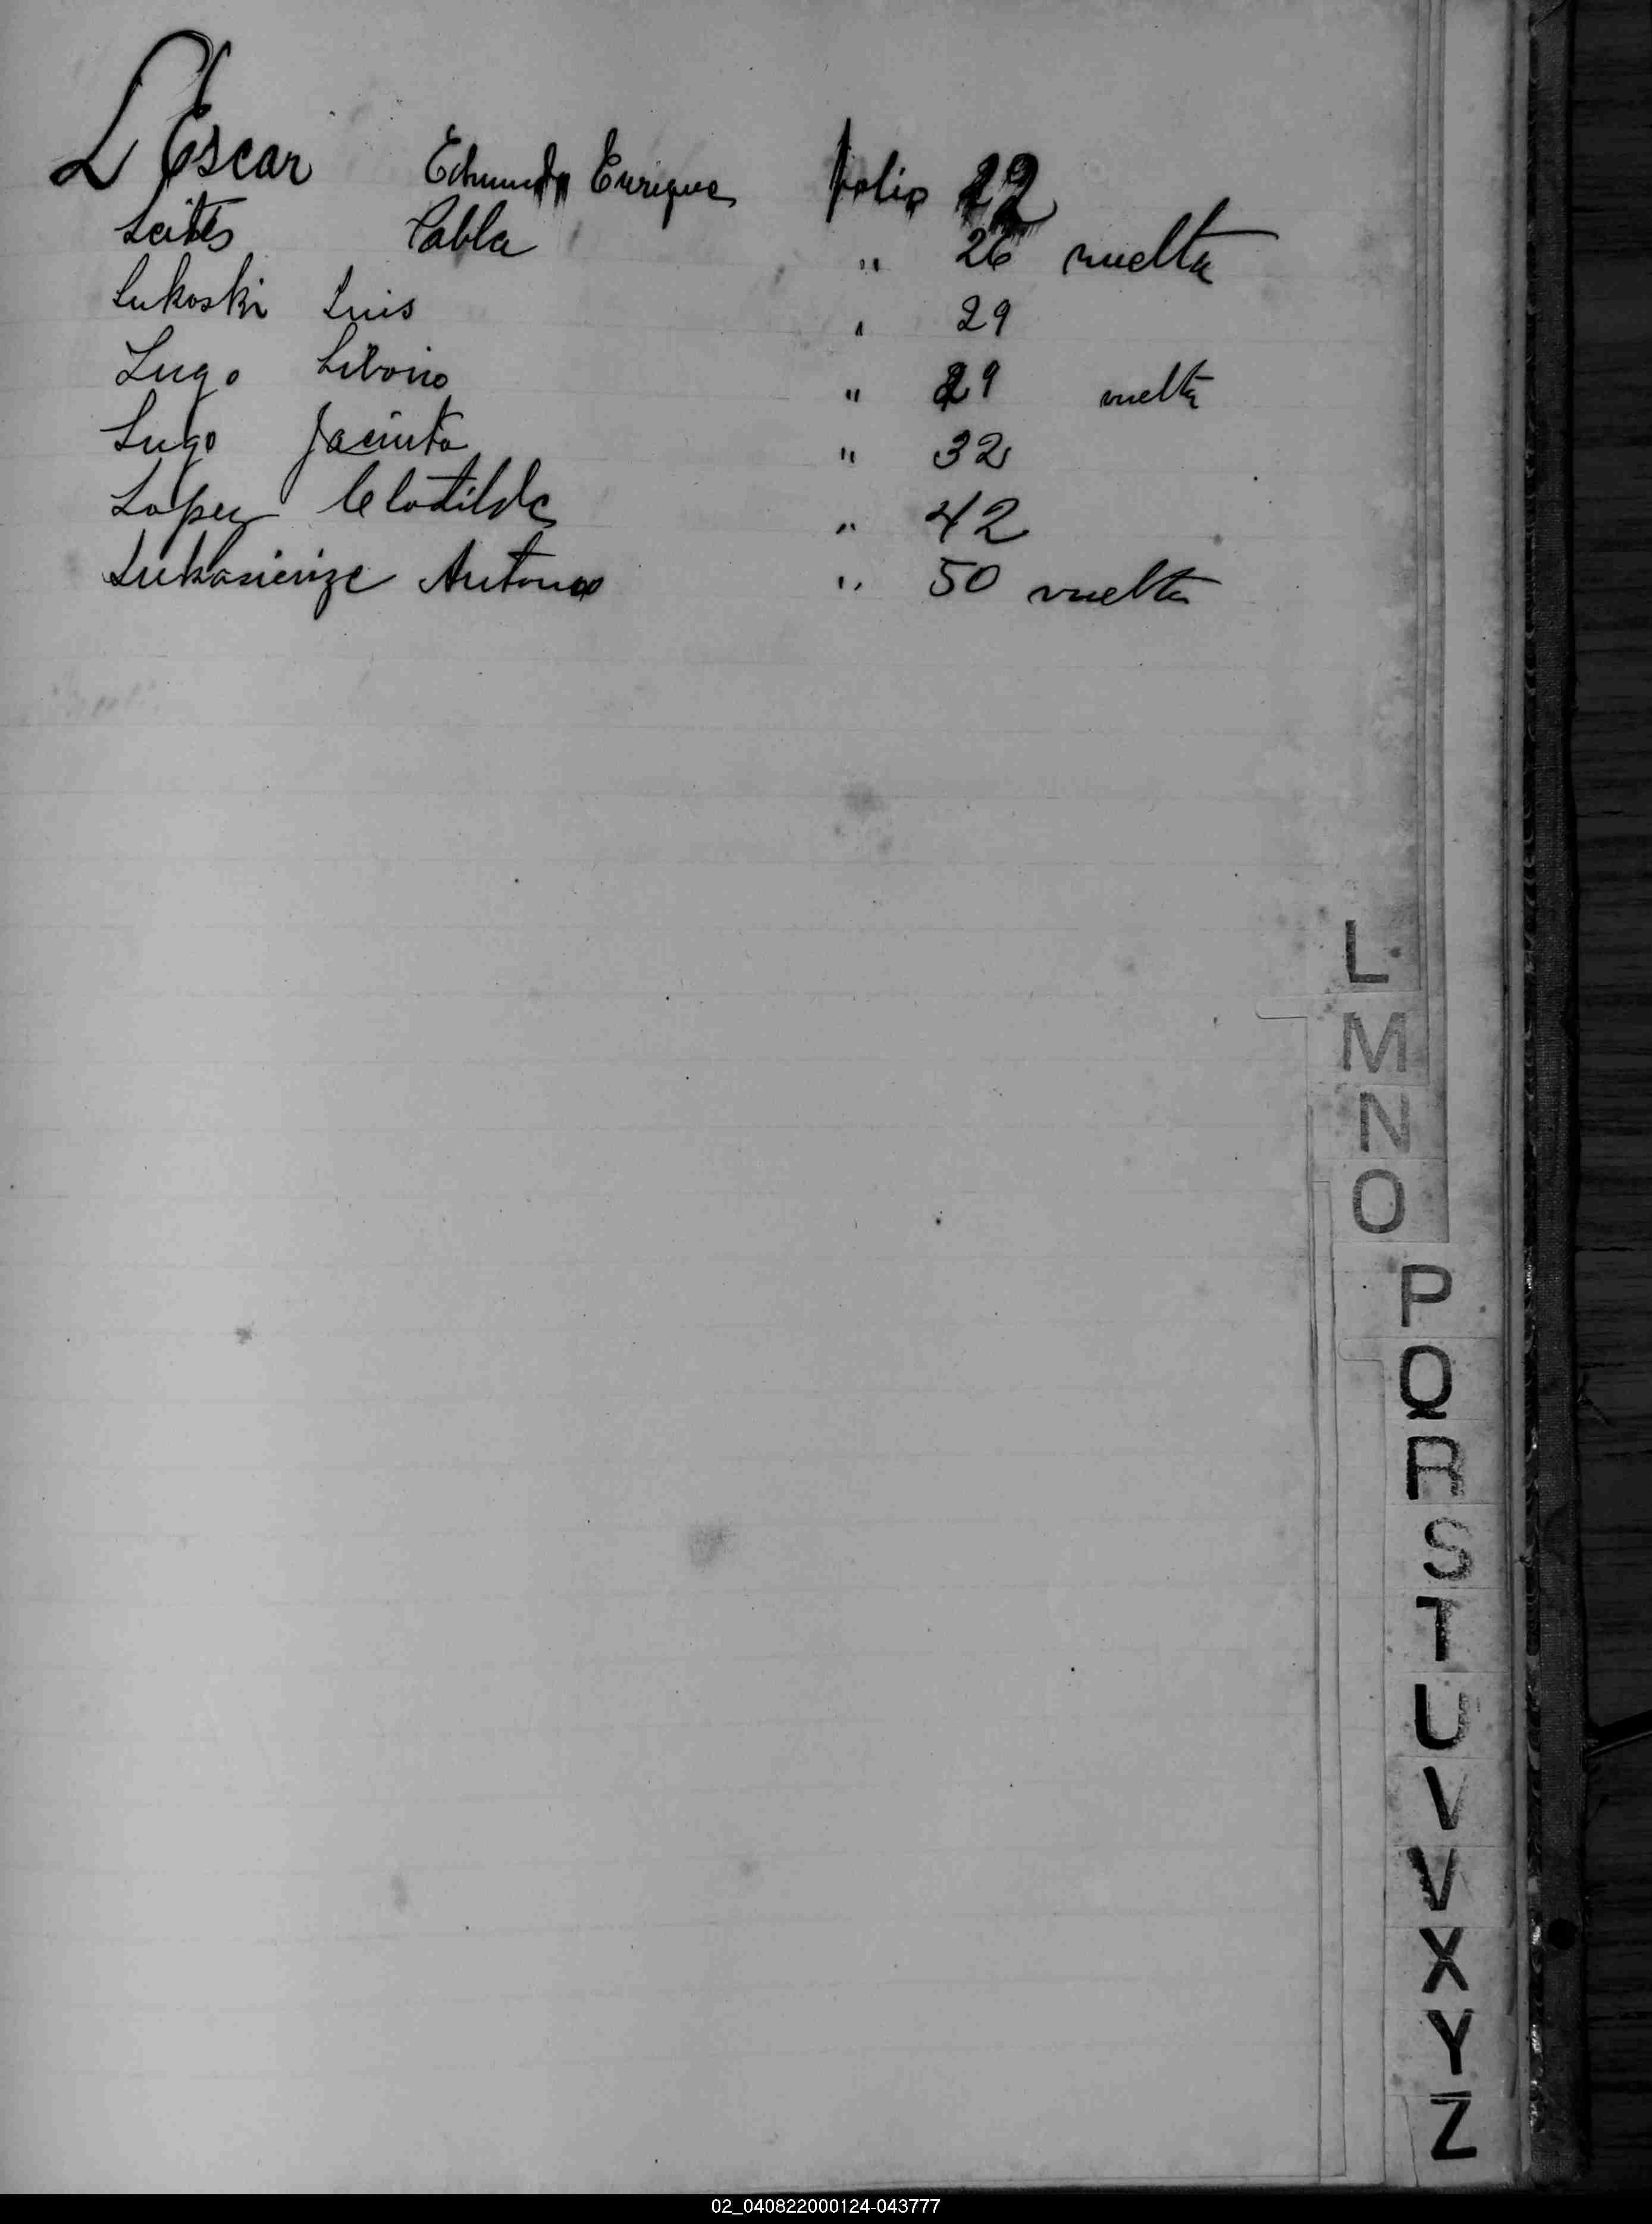 L'Escar Edmundo Enrique folio 22
Leites Pabla " 26 vuelta
Lukoski Luis " 29
Lugo Liborio " 29 vuelta
Lugo Jacinta " 32
Lopez Clotilde " 42
Antonio " 50 vuelta
L
M
N
O
P
Q
R
S
T
U
V
V
X
Y
Z
02_040822000124-043777